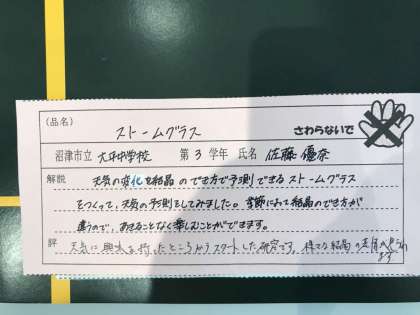 (品名)
ストームグラス
さわらないで
沼津市立 大平中学校 第3学年 氏名 佐藤優奈
解説 天気の変化を結晶のでき方で予測できるストームグラス
をつくって、天気の予測をしてみました。季節によって結晶のでき方が
違うので、あきることなく楽しむことができます。
評 天気に興味を持ったところからスタートした研究です。様々な結晶の
ます